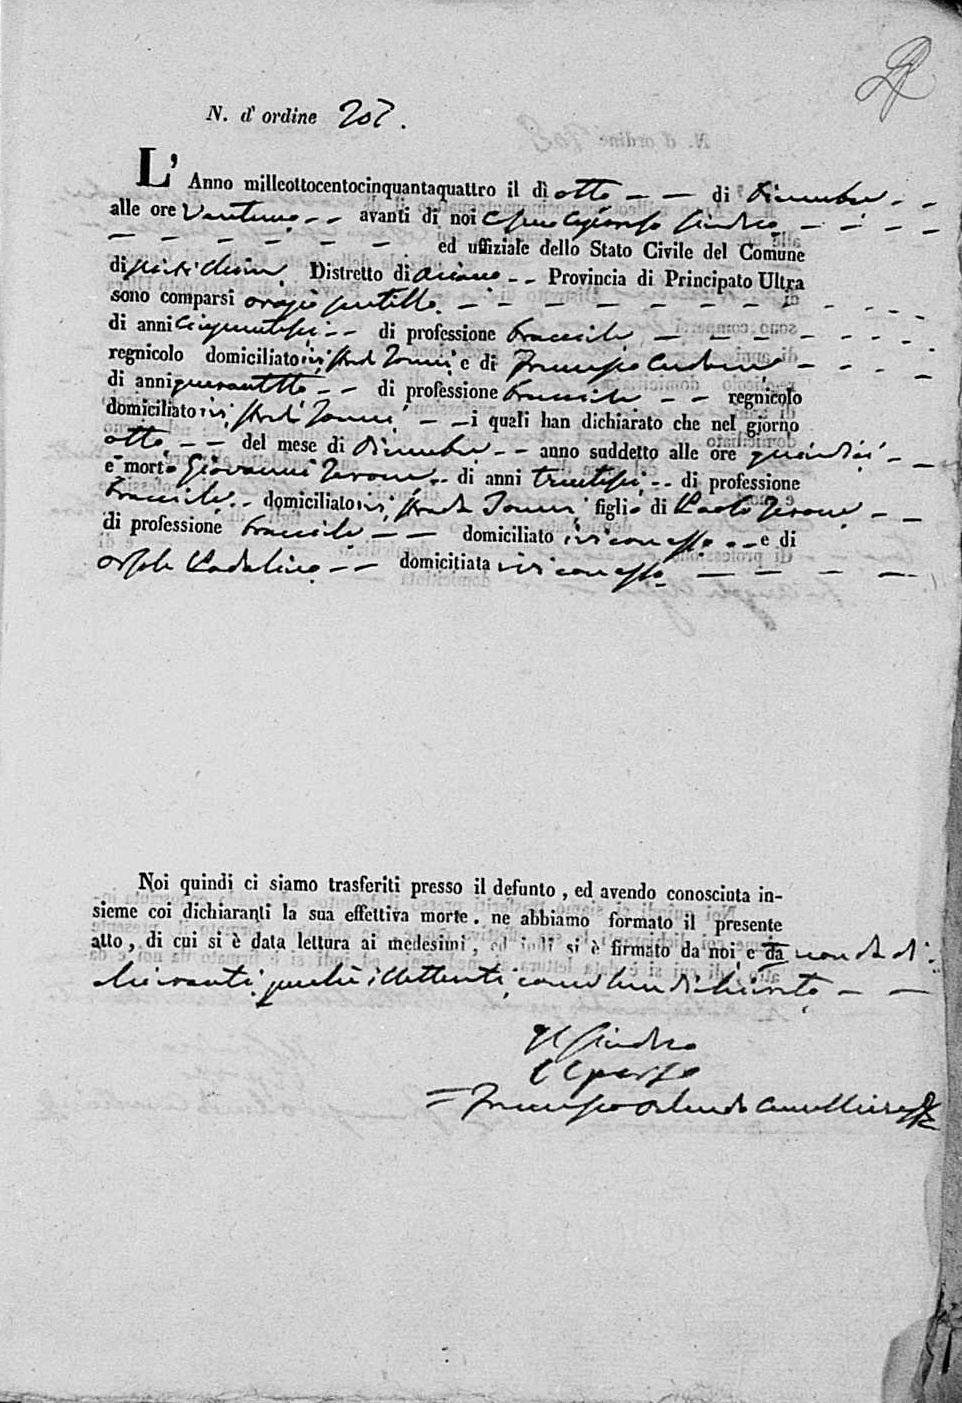 N. d' ordine 207.
L' Anno milleottocentocinquantaquattro il dì otto — — di Dicembre - -
alle ore Ventuno - - avanti di noi Sindaco - - - -
— — — — — — ed uffiziale dello Stato Civile del Comune
di Distretto di Ariano - - Provincia di Principato Ultra
sono comparsi Orazio Gentile — — — — — —
di anni Cinquantasei - - di professione bracciale — — — —
regnicolo domiciliato ivi strada e di Francesco — - - -
di anni quarantotto - - di professione bracciale — — regnicolo
domiciliato ivi strada — — i quali han dichiarato che nel giorno
otto — — del mese di Dicembre - - anno suddetto alle ore quindici - —
è morto Giovanni - - di anni trentasei - - di professione
bracciale - - domiciliato ivi strada figlio di Paolo — —
di professione bracciale — — domiciliato ivi con esso - - e di
Orsola — — domiciliata ivi con esso — — — —
Noi quindi ci siamo trasferiti presso il defunto, ed avendo conosciuta in-
sieme coi dichiaranti la sua effettiva morte. ne abbiamo formato il presente
atto, di cui si è data lettura ai medesimi, ed indi si è firmato da noi, e da non da di
chiaranti perchè illetterati come han dichiarato — —
Il Sindaco
= Francesco Orlando Cancelliere